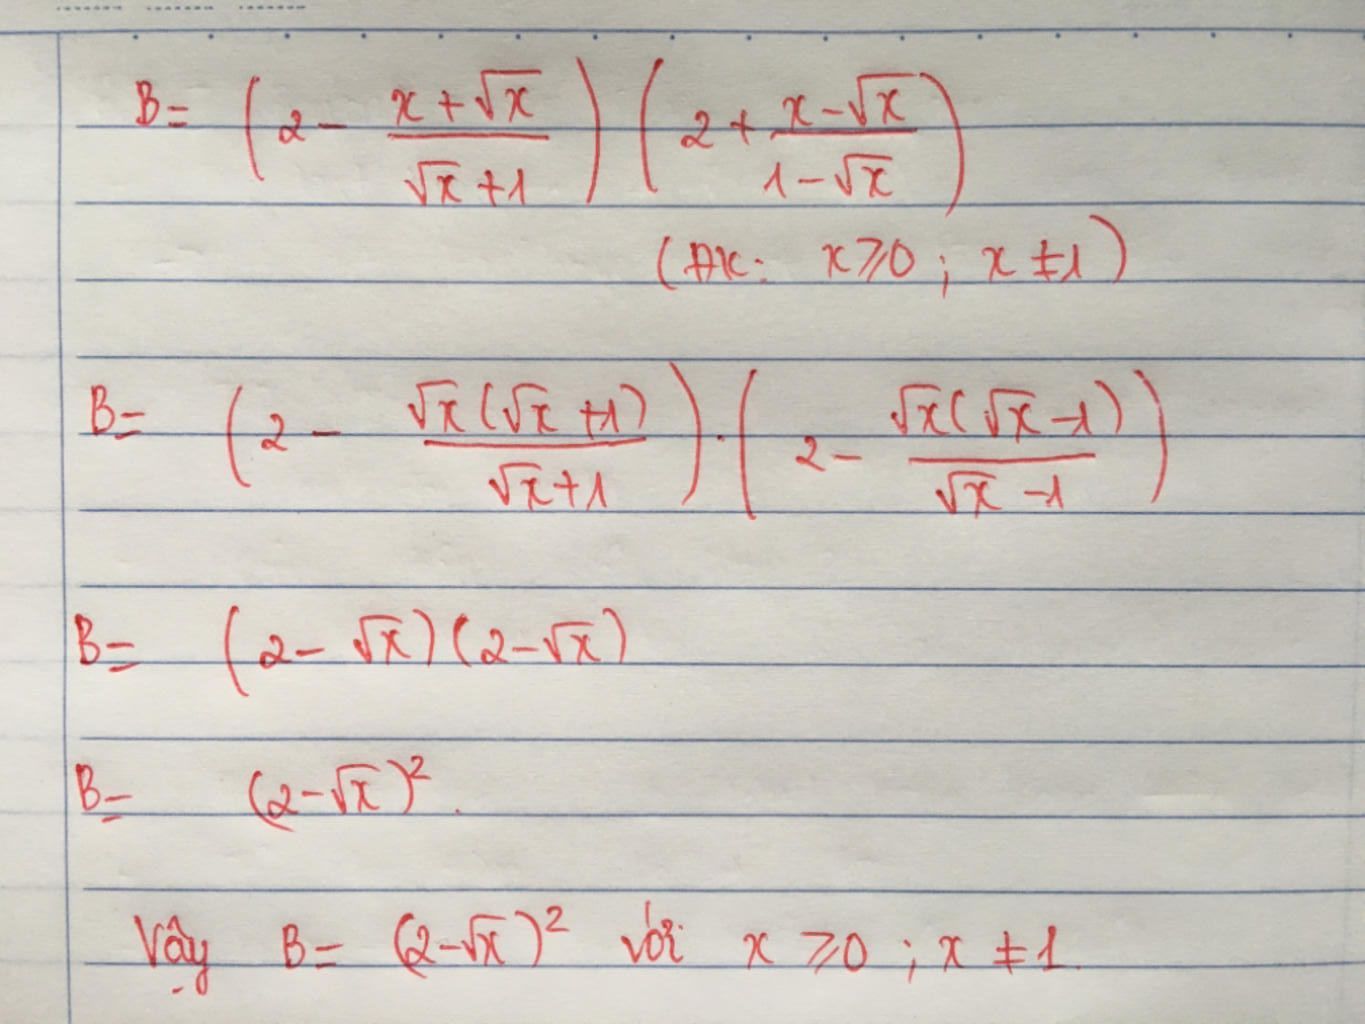 B= (2 - \frac{x+\sqrt{x}}{\sqrt{x}+1}) (2 + \frac{x-\sqrt{x}}{1-\sqrt{x}})
(ĐK: x⩾0 ; x ≠ 1)
B= (2 - \frac{\sqrt{x}(\sqrt{x}+1)}{\sqrt{x}+1}) . (2 - \frac{\sqrt{x}(\sqrt{x}-1)}{\sqrt{x}-1})
B= (2 - \sqrt{x}) (2 - \sqrt{x})
B= (2-\sqrt{x})^2.
Vậy B= (2-\sqrt{x})^2 với x ⩾0 ; x ≠ 1.